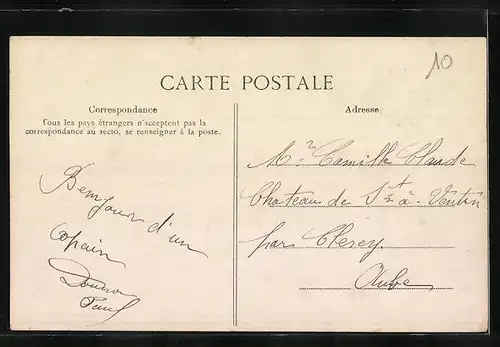 10
CARTE POSTALE
Correspondance
Tous les pays étrangers n'acceptent pas la
correspondance au recto, se renseigner à la poste.
Bonjour d'un
copain
Paul
Adresse
Mr Camille Claude
Chateau de St à
par Clerey
Aube